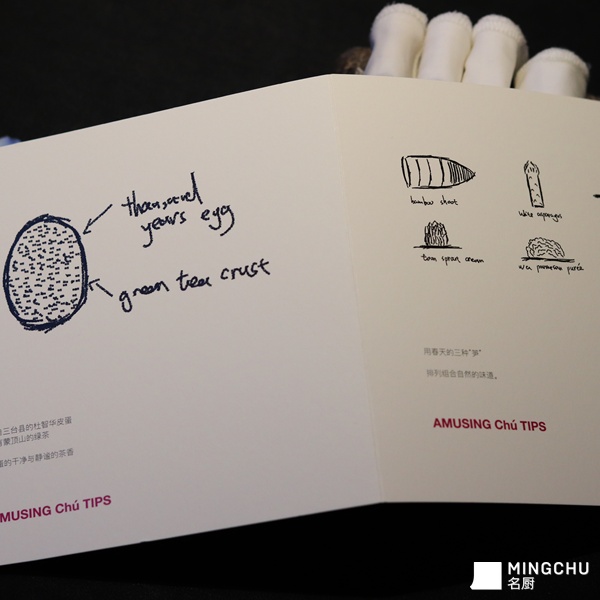 thousand
years egg
green tea crust
三台县的杜智华皮蛋
蒙顶山的绿茶
的干净与静谧的茶香
MUSING Chú TIPS
bamboo shoot
white asparagus
cream
parmesan purée
用春天的三种"笋"
排列组合自然的味道。
AMUSING Chú TIPS
MINGCHU
名厨